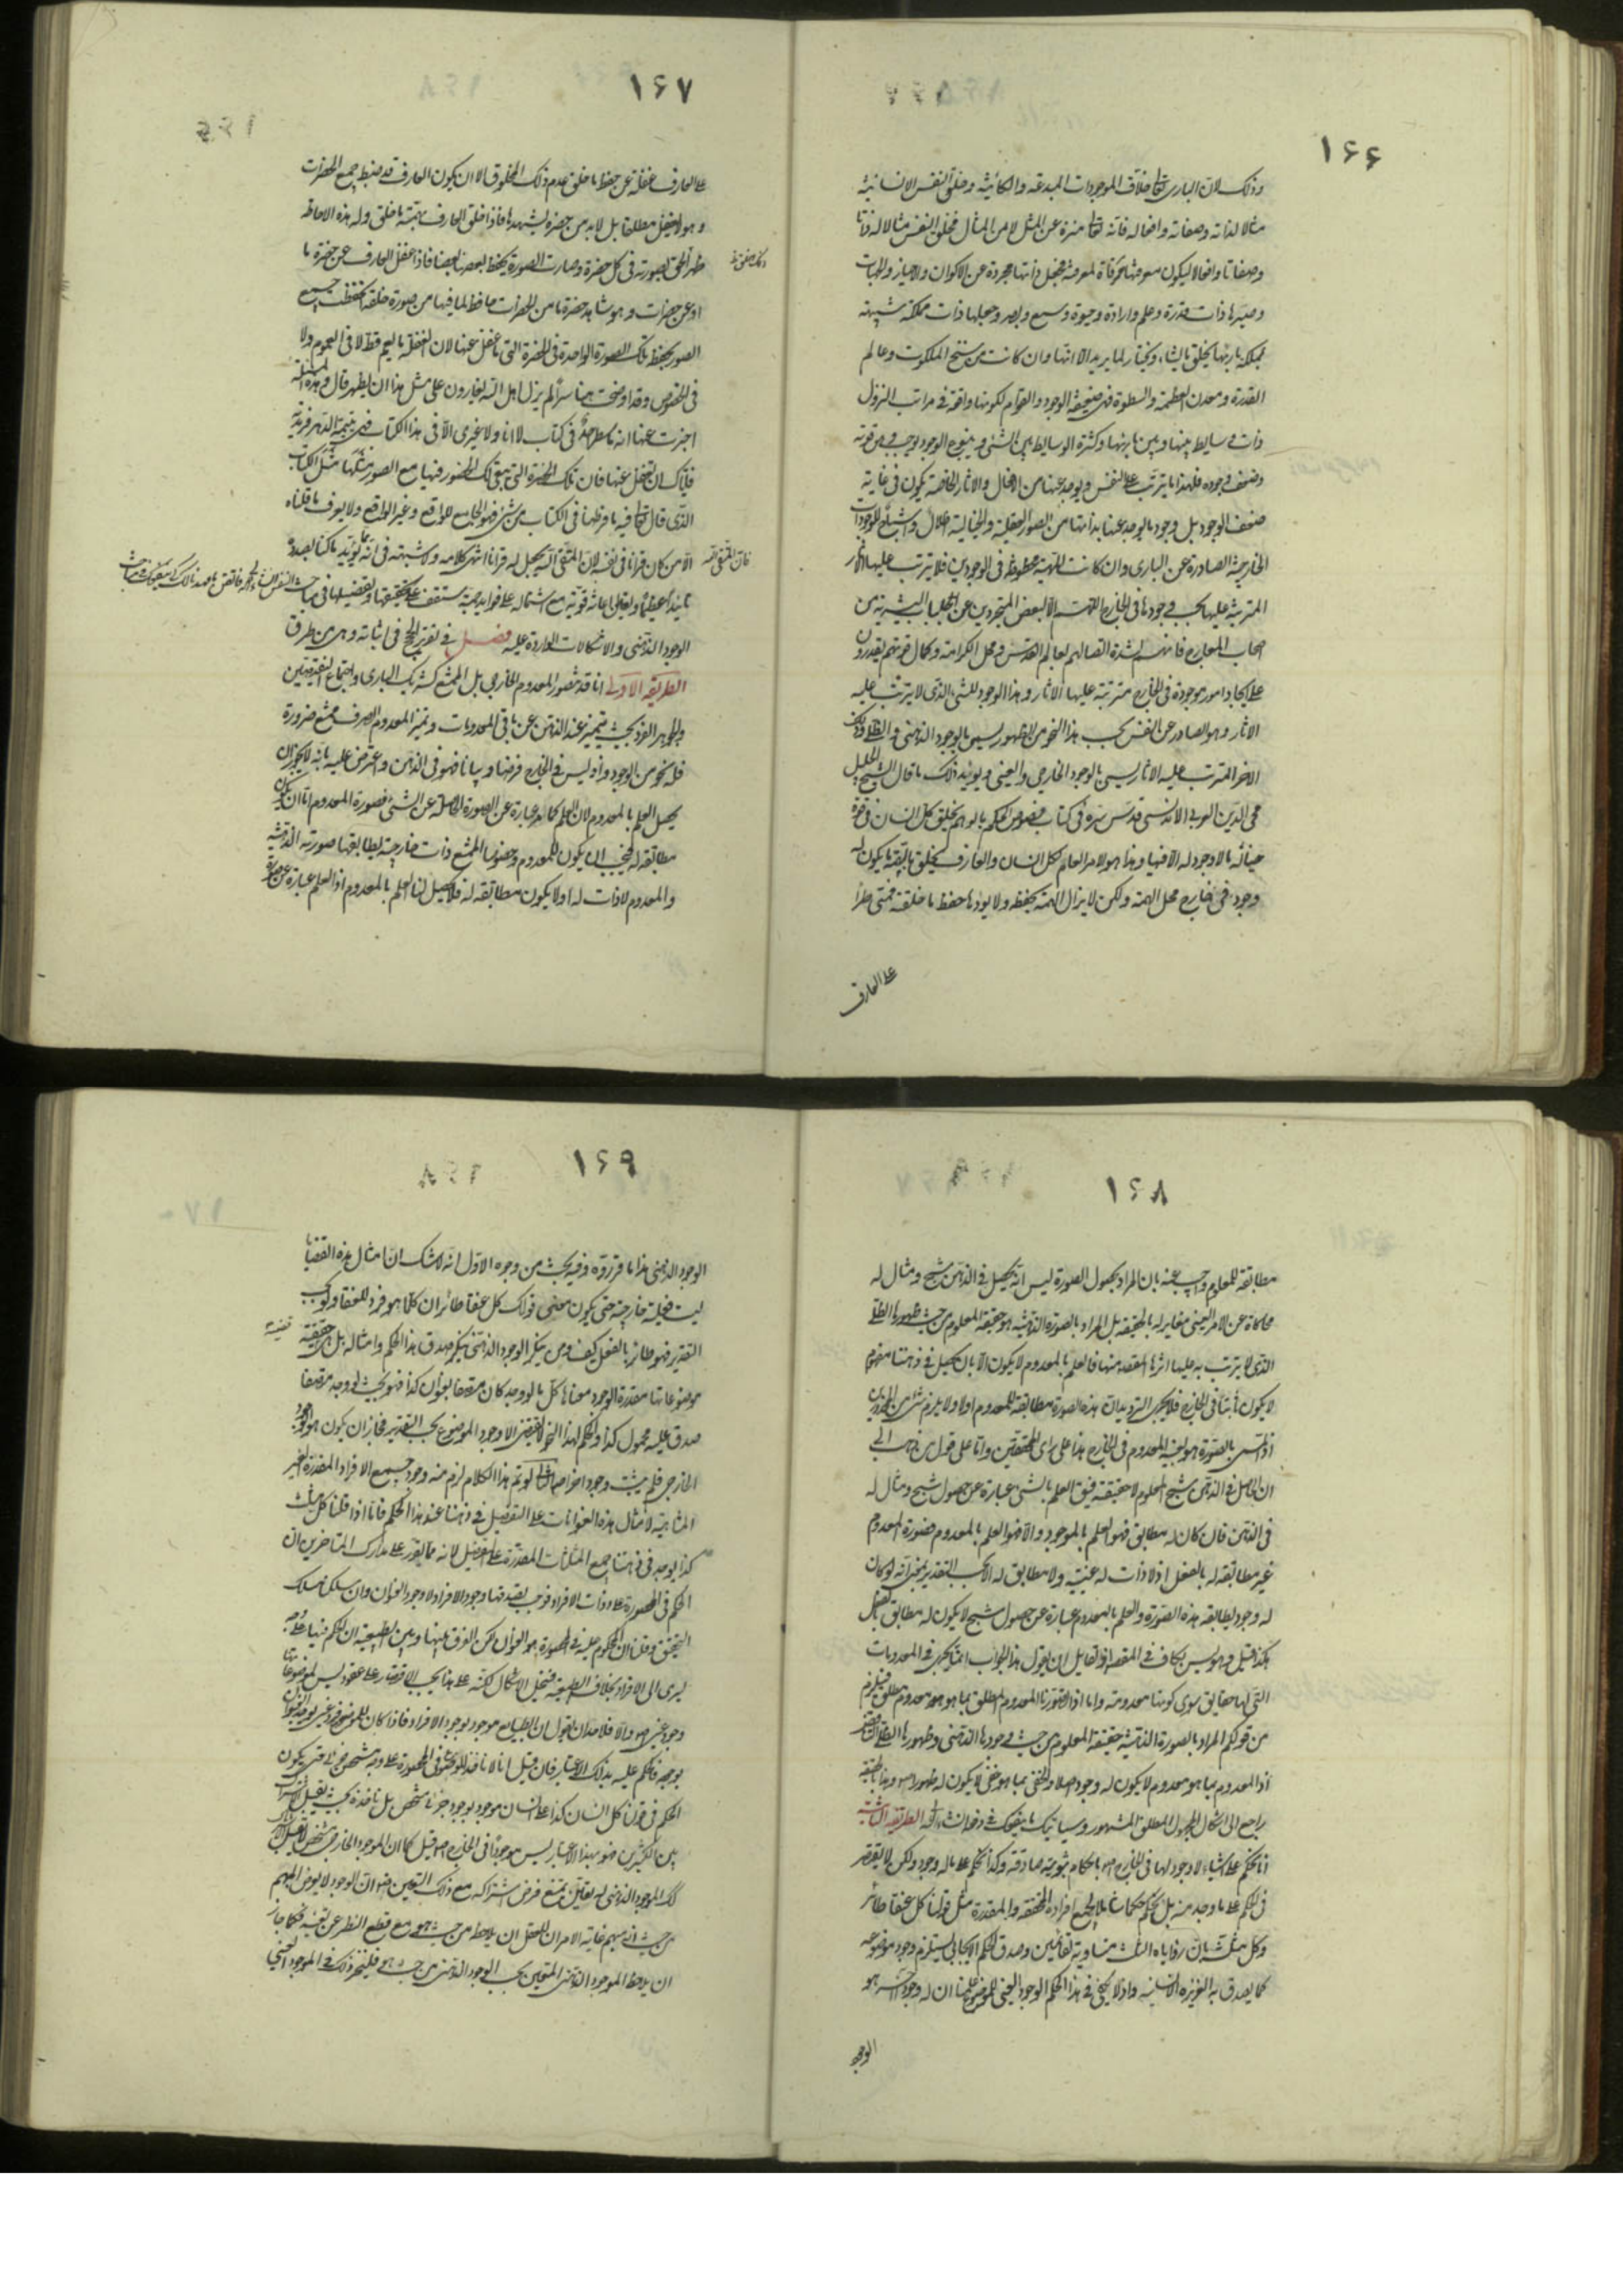 ١۶۶
وذلك لان البارى تعالى خلاق الموجودات المبدعة والكائنة وخلق النفس الانسانية
مثالا لذاته وصفاته وافعاله فانه تعالى منزه عن المثل لا عن المثال فخلق النفس مثالا له ذاتا
وصفاتا وافعالا ليكون معرفتها مرقاة لمعرفته فجعل ذاتها مجردة عن الاكوان والاحياز والجهات
وصيرها ذات قدرة وعلم وارادة وحيوة وسمع وبصر وجعلها ذات مملكة شبيهة
بمملكة باريها يخلق ما يشاء ويختار لما يريد الا انها وان كانت من سنخ الملكوت وعالم
القدرة ومعدن العظمة والسطوة فهى ضعيفة الوجود والقوام لكونها واقعة فى مراتب النزول
ذات وسايط بينها وبين بارئها وكثرة الوسايط بين الشئ وينبوع الوجود يوجب وهن قوته
وضعف وجوده فلهذا ما يترتب على النفس ويوجد عنها من الافعال والاثار الخاصة يكون فى غاية
ضعف الوجود بل وجود ما يوجد عنها بذاتها من الصور العقلية والخيالية اظلال واشباح للوجودات
الخارجية الصادرة عن البارى وان كانت المهية محفوظة فى الوجودين فلا يترتب عليها الاثار
المترتبة عليها بحسب وجودها فى الخارج اللهم الا لبعض المتجردين عن جلباب البشرية من
اصحاب المعارج فانهم لشدة اتصالهم بعالم القدس ومحل الكرامة وكمال قوتهم يقدرون
على ايجاد امور موجودة فى الخارج مترتبة عليها الاثار وهذا الوجود للشئ الذى لا يترتب عليه
الاثار وهو الصادر عن النفس بحسب هذا النحو من الظهور يسمى بالوجود الذهنى والظلى وذلك
الاخر المترتب عليه الاثار يسمى بالوجود الخارجى والعينى ويؤيد ذلك ما قال الشيخ الجليل
محى الدين العربى الاندلسى قدس سره فى كتاب فصوص الحكم بالوهم يخلق كل انسان فى قوة
خياله ما لا وجود له الا فيها وهذا هو الامر العام لكل انسان والعارف يخلق بالهمة ما يكون له
وجود فى خارج محل الهمة ولكن لا يزال الهمة يحفظه ولا يؤدها حفظ ما خلقته فمتى طرأ
على العارف
١۶٧
على العارف غفلة عن حفظ ما خلق عدم ذلك المخلوق الا ان يكون العارف قد ضبط جميع الحضرات
وهو لا يغفل مطلقا بل لا بد من حضرة يشهدها فاذا خلق العارف بهمته ما خلق وله هذه الاحاطة
ظهر ذلك الخلق بصورته فى كل حضرة وصارت الصورة يحفظ بعضها بعضا فاذا غفل العارف عن حضرة ما
او عن حضرات وهو شاهد حضرة ما من الحضرات حافظ لما فيها من صورة خلقه انحفظت جميع
الصور بحفظ تلك الصورة الواحدة فى الحضرة التى ما غفل عنها لان الغفلة ما يعم قط لا فى العموم ولا
فى الخصوص وقد اوضحت هنا سرا لم يزل اهل الله يغارون على مثل هذا ان يظهر قال وهذه المسئلة
اخبرت عنها انه ما سطرها احد فى كتاب لا انا ولا غيرى الا فى هذا الكتاب فهى يتيمة الدهر وفريدته
فاياك ان تغفل عنها فان تلك الحضرة التى يبقى لك الحضور فيها مع الصور مثلها مثل الكتاب
الذى قال تعالى فيه ما فرطنا فى الكتاب من شئ فهو الجامع للواقع وغير الواقع ولا يعرف ما قلناه
الا من كان قرانا فى نفسه فان المتقى الله يجعل له فرقانا انتهى كلامه ولا شبهة فى انه مما يؤيد ما كنا بصدده
تاييدا عظيما ويعين اعانة قوية مع اشتماله على فوايد جمة ستقف على تحقيقها وتفصيلها فى مباحث
الوجود الذهنى والاشكالات الواردة عليه فصل فى تقرير الحجج فى اثباته وهى من طرق
الطريقة الاولى انا قد نتصور المعدوم الخارجى بل الممتنع كشريك البارى واجتماع النقيضين
والجوهر الفرد بحيث يتميز عند الذهن عن باقى المعدومات وتميز المعدوم الصرف ممتنع ضرورة
فله نحو من الوجود واذ ليس فى الخارج فرضا وبيانا فهو فى الذهن واعترض عليه بانه لا يجوز ان
يحصل العلم بالمعدوم لان العلم كما مر عبارة عن الصورة الحاصلة عن الشئ فصورة المعدوم اما ان يكون
مطابقة له فيجب ان يكون للمعدوم وخصوصا الممتنع ذات خارجية يطابقها صورته الذهنية
والمعدوم لا ذات له او لا يكون مطابقة له فلا يحصل لنا العلم بالمعدوم اذ العلم عبارة عن صورة
١۶٨
مطابقة للمعلوم واجيب عنه بان المراد بحصول الصورة ليس انه يحصل فى الذهن شبح ومثال له
محاكاة عن الامر العينى مغاير له بالحقيقة بل المراد بالصورة الذهنية هو حقيقة المعلوم من حيث ظهورها الظلى
الذى لا يترتب به عليها اثرها المقصود منها فالعلم بالمعدوم لا يكون الا بان يحصل فى ذهننا مفهوم
لا يكون ثابتا فى الخارج فلا يجرى الترديد ان هذه الصورة مطابقة للمعدوم اولا ولا يلزم شئ من المحذورين
اذ المسمى بالصورة هو بعينه المعدوم فى الخارج هذا على راى المحققين واما على قول من ذهب الى
ان الحاصل فى الذهن شبح المعلوم لا حقيقته فيق العلم بالشئ عبارة عن حصول شبح ومثال له
فى الذهن فان كان له مطابق فهو العلم بالموجود والا فهو العلم بالمعدوم فصورة المعدوم
غير مطابقة له بالفعل اذ لا ذات له عينية ولا مطابق له الا بحسب التقدير بمعنى انه لو كان
له وجود يطابقه هذه الصورة والعلم بالمعدوم عبارة عن حصول شبح لا يكون له مطابق بالفعل
هكذا قيل وهو ليس بكاف فى المقصود اذ لقايل ان يقول هذا الجواب انما يجرى فى المعدومات
التى لها حقايق سوى كونها معدومة واما اذا تصورنا المعدوم المطلق بما هو معدوم مطلق فيلزم
من قولكم المراد بالصورة الذهنية حقيقة المعلوم من حيث وجودها الذهنى وظهورها الظلى التناقض
اذ المعدوم بما هو معدوم لا يكون له وجود اصلا والمخفى بما هو مخفى لا يكون له ظهور اصلا وهذا بالحقيقة
راجع الى اشكال المجهول المطلق المشهور وسياتيك ما يفيدك فى دفعه انشاء الله الطريقة الثانية
انا نحكم على اشياء لا وجود لها فى الخارج اصلا باحكام ثبوتية صادقة وكذا نحكم على ما له وجود ولكن لا نقتصر
فى الحكم على ما وجد منه بل نحكم حكما شاملا لجميع افراده المحققة والمقدرة مثل قولنا كل عنقا طائر
وكل مثلث فان زواياه الثلث متساوية لقائمتين وصدق الحكم الايجابى يستلزم وجود موضوعه
كما يصدق به الغريزة الانسانية واذ لا يكفى فى هذا الحكم الوجود العينى للموضوع علمنا ان له وجودا اخر هو
الوجود
١۶٩
الوجود الذهنى هذا ما قرروه وفيه بحث من وجوه الاول انه لا شك ان امثال هذه القضايا
ليست فعلية خارجية حتى يكون معنى قولك كل عنقا طائر ان كلما هو فرد للعنقا ولو بحسب
التقدير فهو طائر بالفعل كيف ومن ينكر الوجود الذهنى ينكر صدق هذا الحكم وامثاله بل هى قضية حقيقية
موضوعاتها مقدرة الوجود معناها كل ما لو وجد كان متصفا بعنوان كذا فهو بحيث لو وجد متصفا
صدق عليه محمول كذا والحكم بهذا النحو لا يقتضى الا وجود الموضوع بحسب التقدير فجاز ان يكون هو الوجود
الخارجى فلم يثبت وجود اخر اصلا الثانى لو تم هذا الكلام لزم منه وجود جميع الافراد المقدرة الغير
المتناهية لامثال هذه العنوانات على التفصيل فى ذهننا عند هذا الحكم فانا اذا قلنا كل مثلث
كذا يوجد فى ذهننا جميع المثلثات المقدرة على التفصيل لانه مما تقرر على مدارك المتاخرين ان
الحكم فى المحصورة على ذوات الافراد فوجب بصدقها وجود الافراد لا وجود العنوان وان سلك مسلك
التحقيق وقلنا ان المحكوم عليه فى المحصورة هو العنوان لكن الفرق بينها وبين الطبيعية ان الحكم فيها على وجه
يسرى الى الافراد بخلاف الطبيعية فينحل الاشكال لكنه على هذا يجب الاقتصار على عقود ليس لموضوعاتها
وجود عينى اصلا والا فلاحد ان يقول ان الطبايع موجود بوجود الافراد فاذا كان للموضوع فرد عينى يوجد العنوان
بوجوده فالحكم عليه بذلك الاعتبار فان قيل انا لا ناخذ الموضوع فى المحصورة على وجه شخصى جزئى حتى يكون
الحكم فى قولنا كل انسان كذا على انسان موجود بوجود جزئى شخصى بل ناخذه بحيث يقبل الاشتراك
بين الكثيرين فهو بهذا الاعتبار ليس موجودا فى الخارج اصلا قيل كما ان الموجود الخارجى شخصى لا يقبل الاشتراك
كذلك الموجود الذهنى له تعين يمتنع فرض اشتراكه مع ذلك التعين فيه اذ الوجود لا يعرض المبهم
من حيث انه مبهم غاية الامر ان للعقل ان يلاحظه من حيث هو مع قطع النظر عن تعينه فكما جاز
ان يلاحظ الموجود الذهنى المتعين بحسب الوجود الذهنى من حيث هى فليتجز ذلك فى الموجود العينى